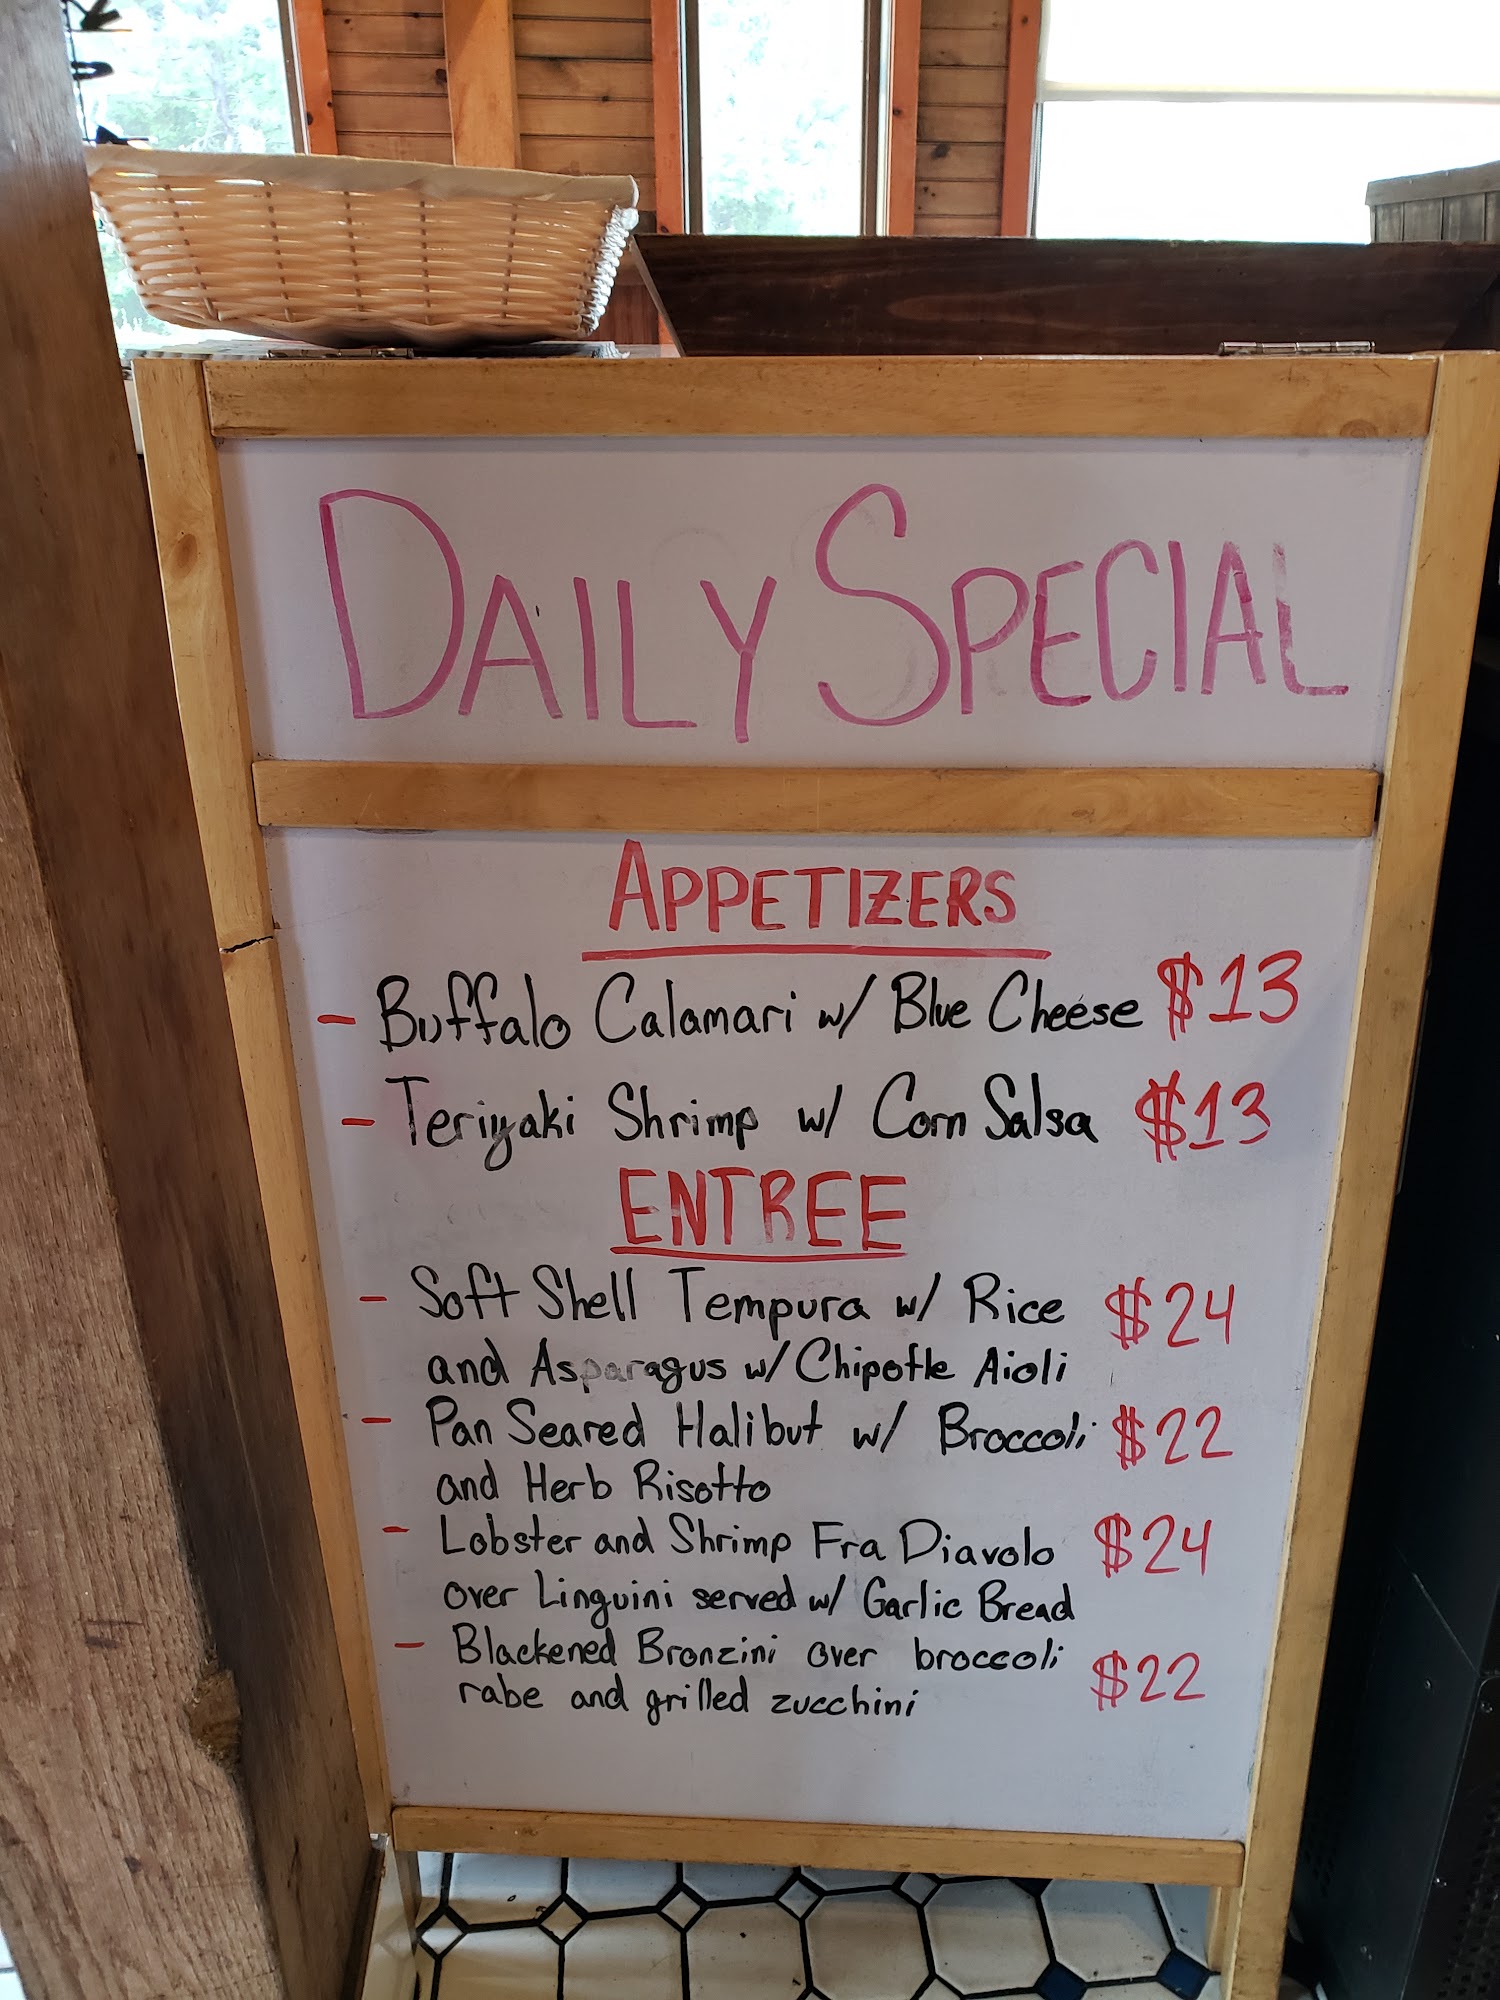 DAILY SPECIAL
APPETIZERS
- Buffalo Calamari w/ Blue Cheese $13
- Teriyaki Shrimp w/ Corn Salsa $13
ENTREE
- Soft Shell Tempura w/ Rice $24
and Asparagus w/ Chipotle Aioli
- Pan Seared Halibut w/ Broccoli $22
and Herb Risotto
- Lobster and Shrimp Fra Diavolo $24
over Linguini served w/ Garlic Bread
- Blackened Bronzini over broccoli
rabe and grilled zucchini $22